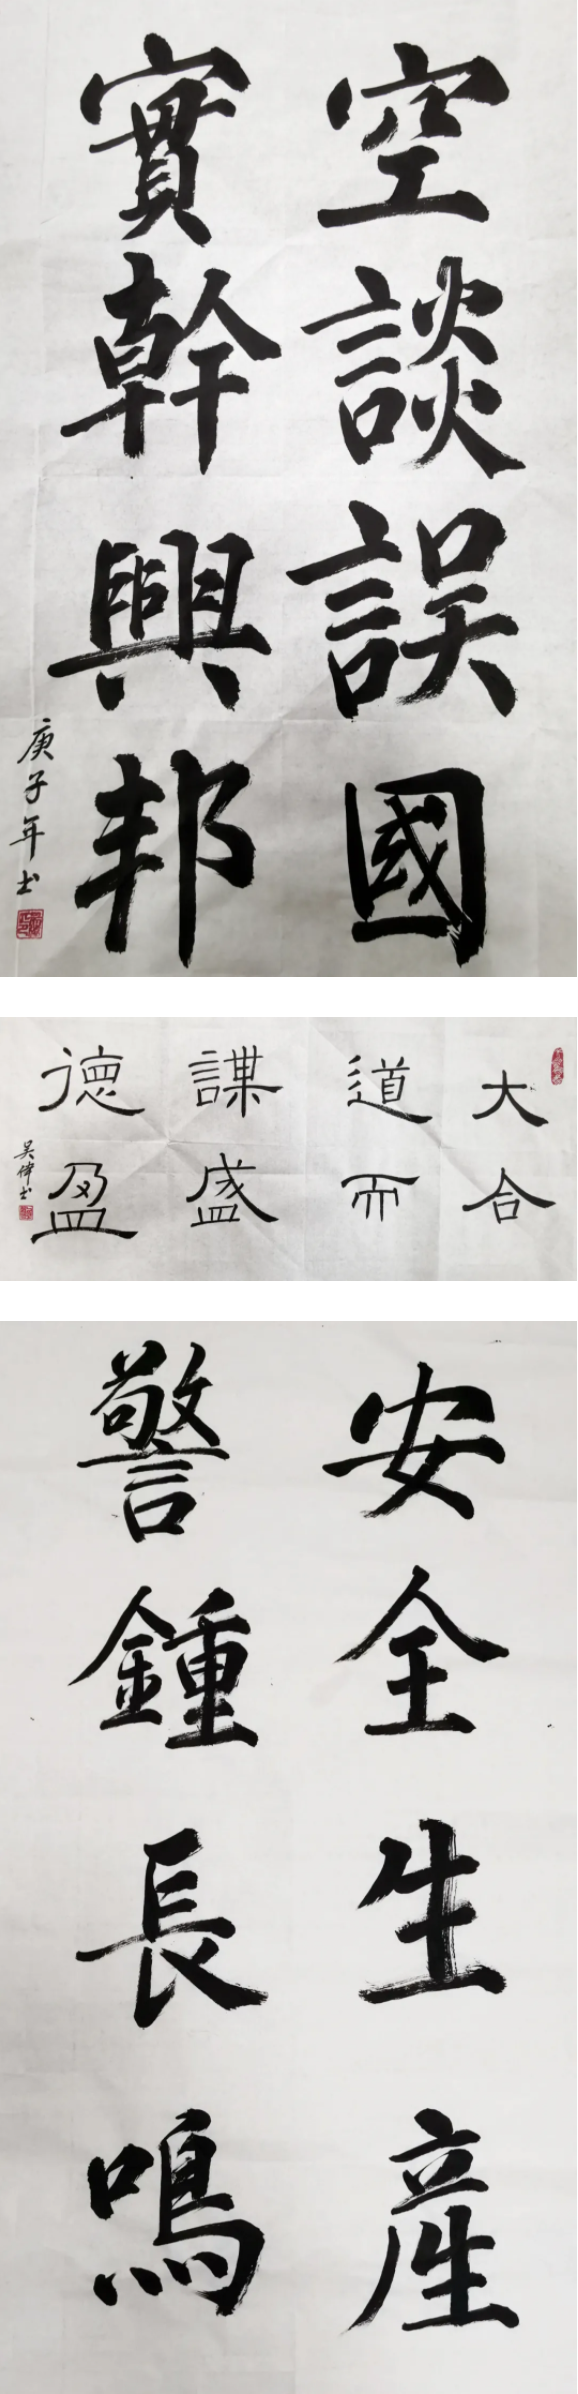 空談誤國
實幹興邦
庚子年书
大合
道而
謀盛
德盈
吴伟书
安全生産
警鍾長鳴